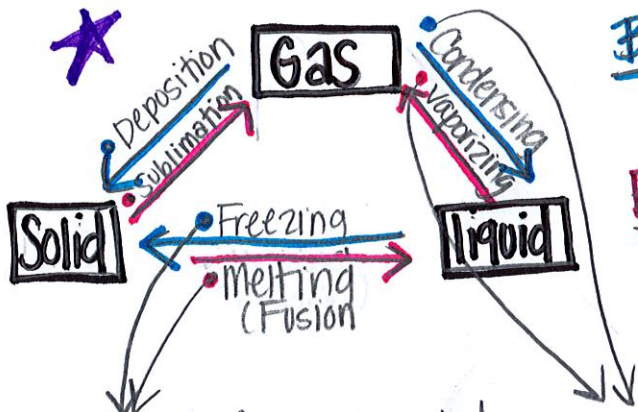 Gas
Deposition
Sublimation
Condensing
Vaporizing
Solid
Freezing
liquid
Melting
(Fusion